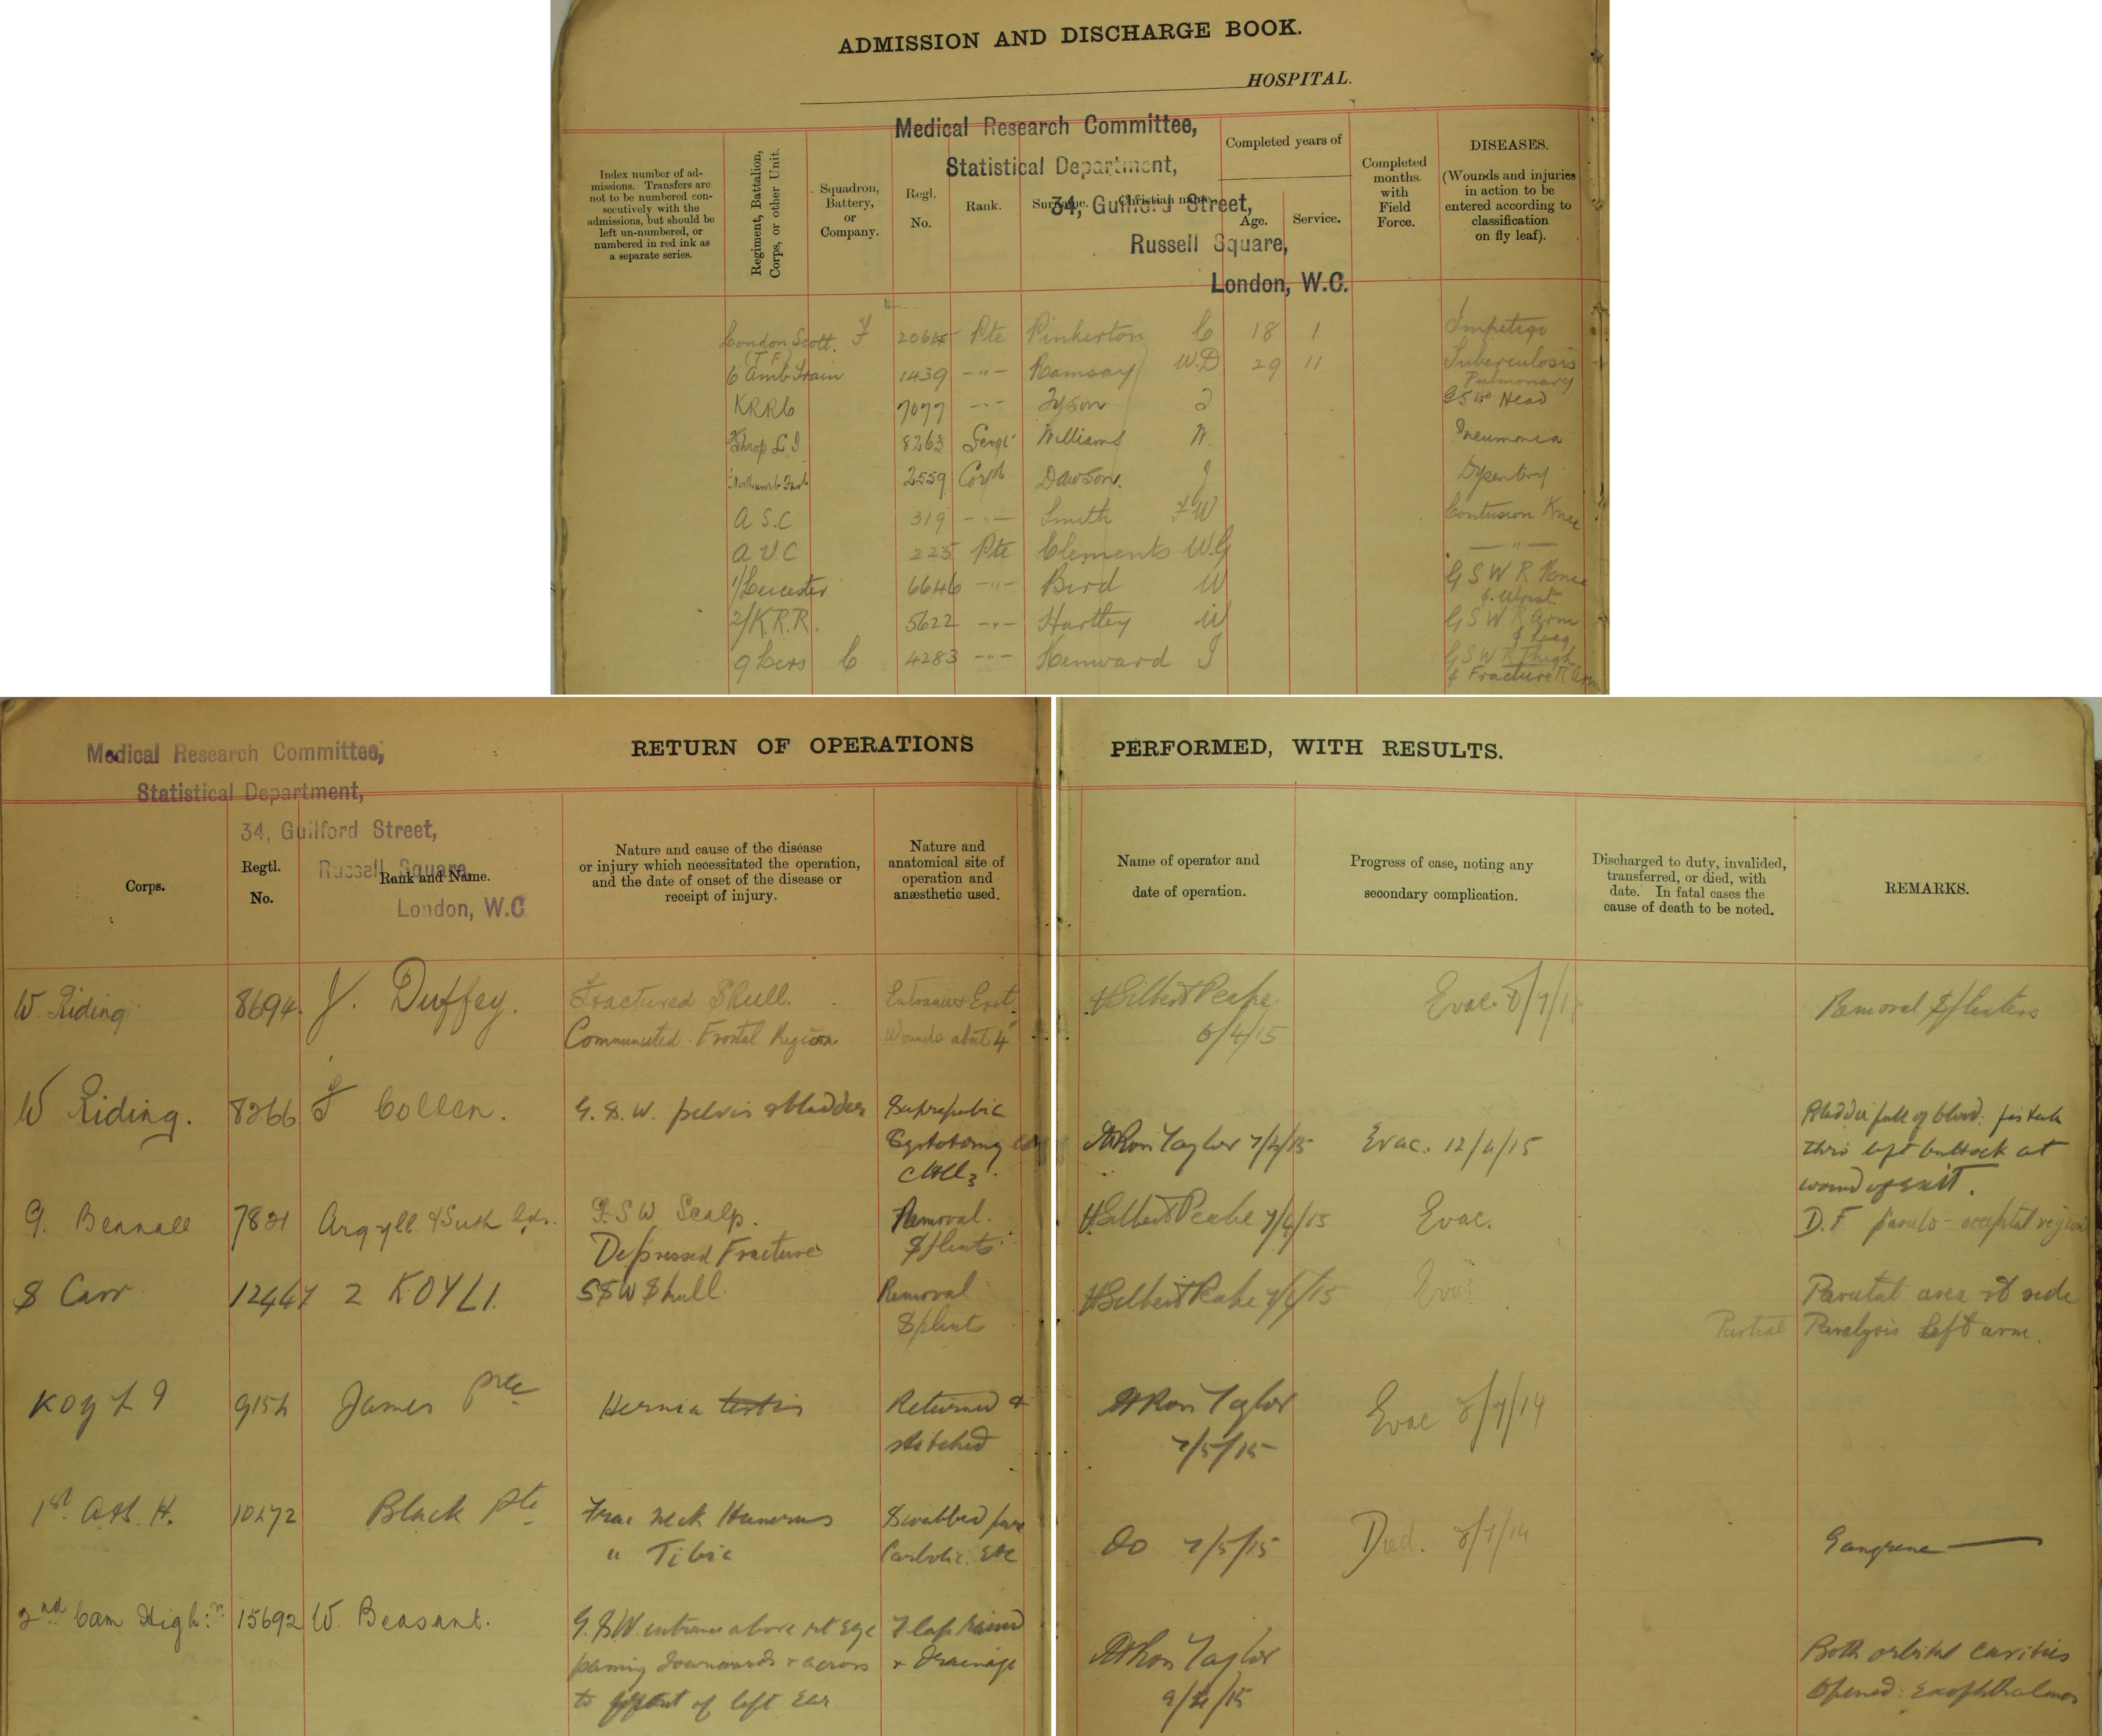 ADMISSION AND DISCHARGE BOOK.
HOSPITAL.
Medical Research Committee,
Statistical Department,
34, Guilford Street,
Russell Square,
London, W.C.
Index number of ad-
missions. Transfers are
not to be numbered con-
secutively with the
admissions, but should be
left un-numbered, or
numbered in red ink as
a separate series.
Regiment, Battalion,
Corps, or other Unit.
Squadron,
Battery,
or
Company.
Regl.
No.
Rank.
Surname.
Christian name.
Completed years of
Age.
Service.
Completed
months
with
Field
Force.
DISEASES.
(Wounds and injuries
in action to be
entered according to
classification
on fly leaf).
London Scott. Pte Pinkerton C 18 1 Impetigo
(T F)
6 Amb Train 1439 -"- Ramsay W.D 29 11 Tuberculosis
Pulmonary
KRRC 7077 -"- Tyson J GSW Head
Shrop L.I 8263 Sergt Williams W. Pneumonia
2559 Corpl Dawson. J Dysentery
A S.C 319 -"- Smith F W Contusion Knee
A V C 225 Pte Clements W.G -"-
1/Leicester 6646 -"- Bird W G S W R Knee
& Wrist
2/K.R.R. 5622 -"- Hartley W G S W R Arm
& Leg
9 Lcrs C 4283 -"- Kenward J G S W R Thigh
& Fracture R Arm
Medical Research Committee,
Statistical Department,
34, Guilford Street,
Russell Square,
London, W.C
RETURN OF OPERATIONS PERFORMED, WITH RESULTS.
Corps.
Regtl.
No.
Rank and Name.
Nature and cause of the disease
or injury which necessitated the operation,
and the date of onset of the disease or
receipt of injury.
Nature and
anatomical site of
operation and
anæsthetic used.
Name of operator and
date of operation.
Progress of case, noting any
secondary complication.
Discharged to duty, invalided,
transferred, or died, with
date. In fatal cases the
cause of death to be noted.
REMARKS.
W. Riding 8694. J. Duffey. Fractured Skull. Entrance & Exit H Gilbert Peake Evac. Removal Splinters
Comminuted Frontal Region Wounds about 4" 6/4/15
W Riding. 8266 J Collen. G.S.W. pelvis & bladder Suprapubic Bladder full of blood. fistula
Cystotomy Taylor 7/4/15 Evac. 12/4/15 thro left buttock at
CHCl3. wound of exit.
G. Bennall 7821 Argyll & Suth Hdrs. G.S W Scalp. Removal H Gilbert Peake 7/4/15 Evac. D.F. region
Depressed Fracture Splints
S Carr 12447 2 KOYLI. Skull. Removal H Gilbert Peake Evac Parietal area rt side
Splints Partial Paralysis left arm.
KOYLI James Pte Hernia testis Returned & Taylor Evac 8/7/14
stitched 7/5/15
1st A&S. H. 10272 Black Pte Frac neck Humerus Swabbed pure Do 7/5/15 Died. 8/7/14 Gangrene
" Tibia Carbolic. Etc
2nd Cam High:rs 15692 W. Beasant. G.S.W. entrance above rt eye Flap raised Taylor Both orbital cavities
passing downwards & across & drainage opened: Exophthalmos
to front of left ear